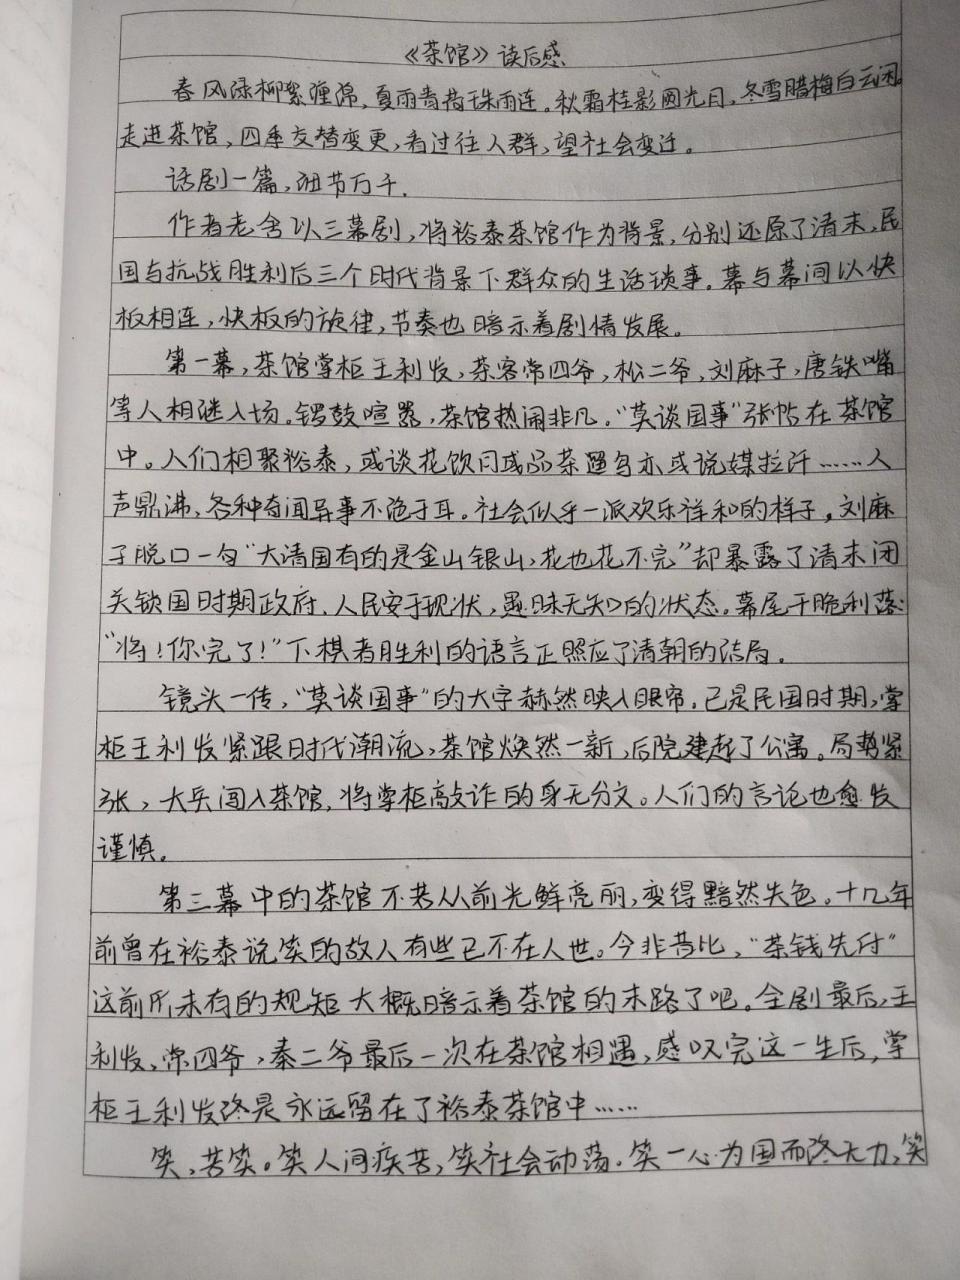 《茶馆》读后感
春风绿柳絮缠绵，夏雨青荷玉珠连。秋霜桂影圆光月，冬雪腊梅白云闲。
走进茶馆，四季交替变更，看过往人群，望社会变迁。
话剧一篇，细节万千.
作者老舍以三幕剧，将裕泰茶馆作为背景，分别还原了清末，民
国与抗战胜利后三个时代背景下群众的生活琐事。幕与幕间以快
板相连，快板的旋律，节奏也暗示着剧情发展。
第一幕，茶馆掌柜王利发，茶客常四爷，松二爷，刘麻子，唐铁嘴
等人相继入场。锣鼓喧嚣，茶馆热闹非凡。“莫谈国事”张帖在茶馆
中。人们相聚裕泰，或谈花饮月或品茶遛鸟亦或说媒拉纤……人
声鼎沸，各种奇闻异事不绝于耳。社会似乎一派欢乐祥和的样子，刘麻
子脱口一句“大清国有的是金山银山，花也花不完”却暴露了清末闭
关锁国时期政府，人民安于现状，愚昧无知的状态。幕尾干脆利落:
“将！你完了！”下棋者胜利的语言正照应了清朝的结局。
镜头一传，“莫谈国事”的大字赫然映入眼帘。已是民国时期，掌
柜王利发紧跟时代潮流，茶馆焕然一新，后院建起了公寓。局势紧
张，大兵闯入茶馆，将掌柜敲诈的身无分文。人们的言论也愈发
谨慎。
第三幕中的茶馆不若从前光鲜亮丽，变得黯然失色。十几年
前曾在裕泰说笑的故人有些已不在人世。今非昔比，“茶钱先付”
这前所未有的规矩大概暗示着茶馆的末路了吧。全剧最后，王
利发、常四爷，秦二爷最后一次在茶馆相遇，感叹完这一生后，掌
柜王利发终是永远留在了裕泰茶馆中……
笑，苦笑。笑人间疾苦，笑社会动荡。笑一心为国而终无力，笑